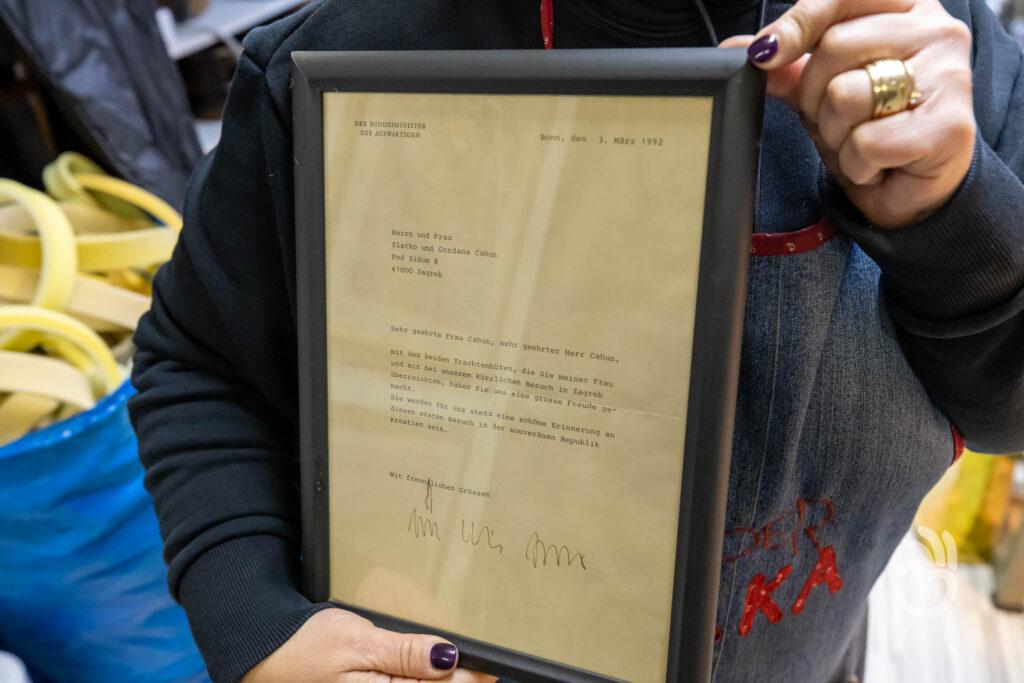 DER BUNDESMINISTER
DES AUSWÄRTIGEN
Bonn, den 3. März 1992
Herrn und Frau
Zlatko und Gordana Cahun
Pod Zidom 8
41000 Zagreb
Sehr geehrte Frau Cahun, sehr geehrter Herr Cahun,
mit den beiden Trachtenhüten, die Sie meiner Frau
und mir bei unserem kürzlichen Besuch in Zagreb
überreichten, haben Sie uns eine grosse Freude ge-
macht.
Sie werden für uns stets eine schöne Erinnerung an
diesen ersten Besuch in der souveränen Republik
Kroatien sein.
Mit freundlichen Grüssen
KA